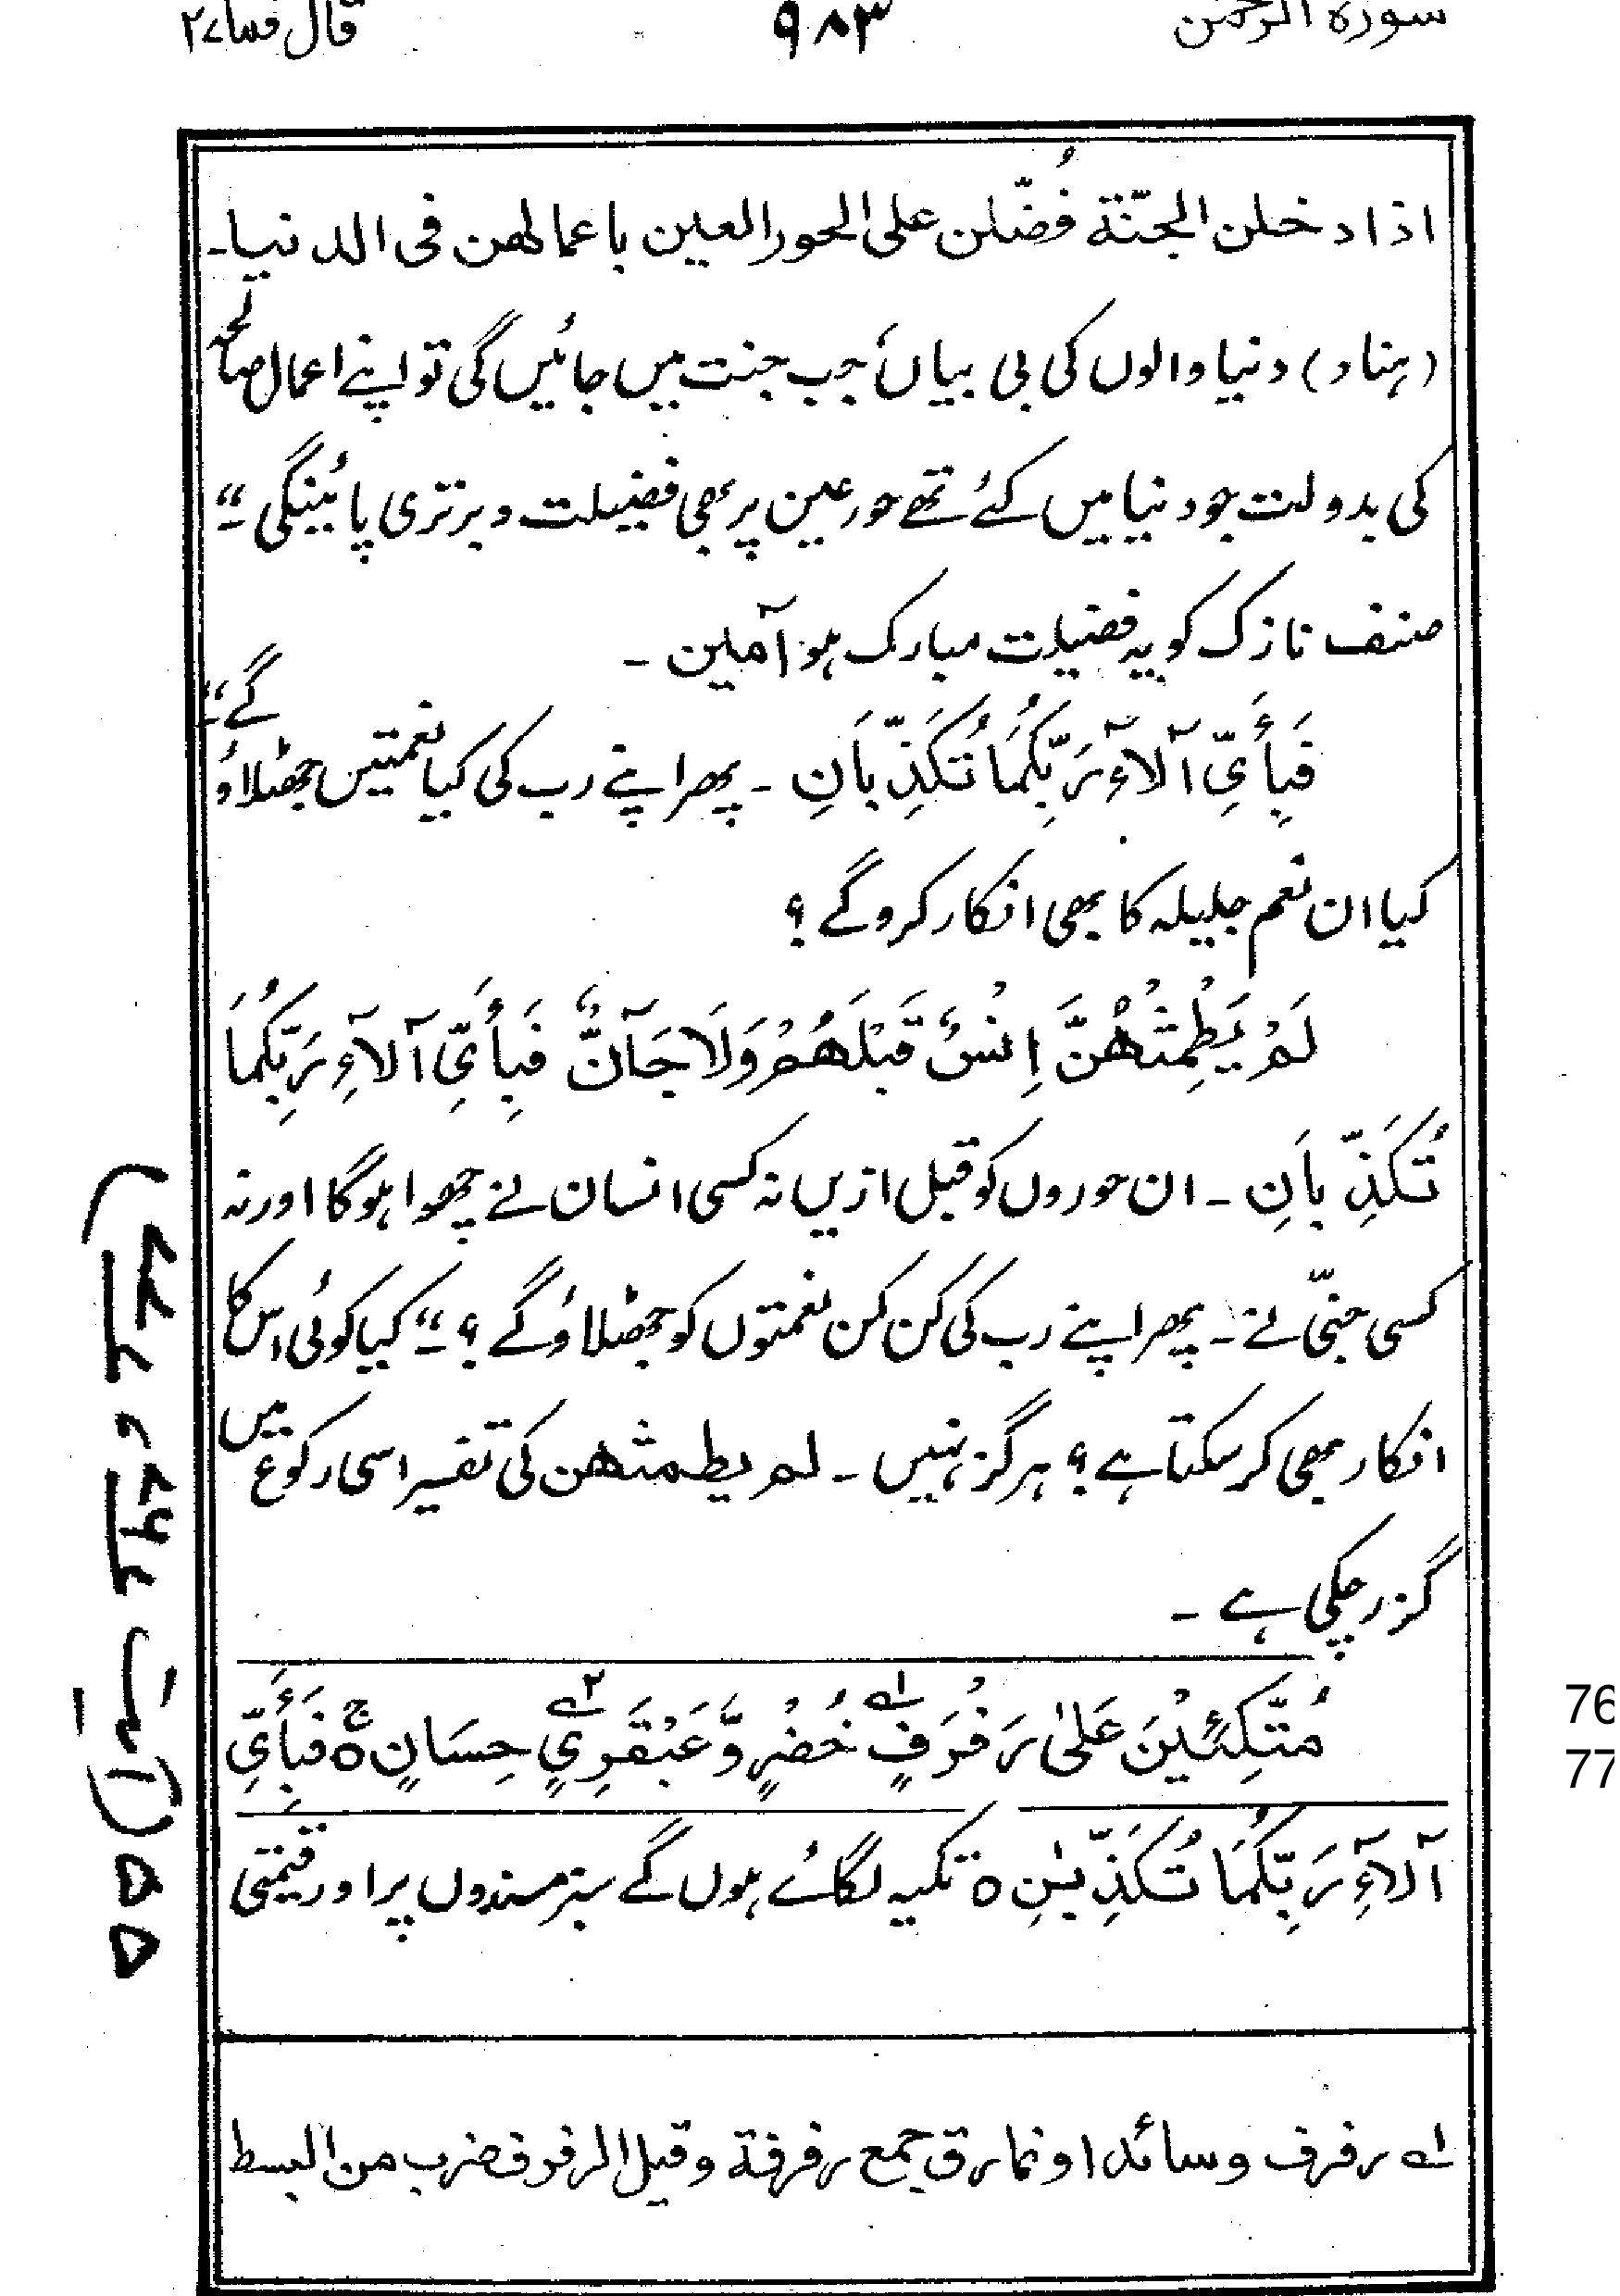 سورۃ الرحمٰن ۹۸۳ قال فما ۲۷
اذا دخلن الجنّة فُضّلن علی الحور العین باعمالھن فی الدنیا۔
(ہناد) دنیا والوں کی بی بیاں جب جنت میں جائیں گی تو اپنے اعمال صالحہ
کی بدولت جو دنیا میں کئے تھے حور عین پر بھی فضیلت و برتری پائینگی۔"
صنف نازک کو یہ فضیلت مبارک ہو آمین ۔
فَبِأَیِّ آلَآءِ رَبِّکُمَا تُکَذِّبَانِ ۔ پھر اپنے رب کی کیا نعمتیں جھٹلاؤ گے۔"
کیا ان نعم جلیلہ کا بھی انکار کرو گے ؟
لَمْ یَطْمِثْهُنَّ اِنْسٌ قَبْلَهُمْ وَلَا جَآنٌّ فَبِأَیِّ آلَآءِ رَبِّکُمَا
تُکَذِّبَانِ ۔ ان حوروں کو قبل ازیں نہ کسی انسان نے چھوا ہوگا اور نہ
کسی جنّی نے ۔ پھر اپنے رب کی کن کن نعمتوں کو جھٹلاؤ گے ؟۔" کیا کوئی اس کا
انکار بھی کر سکتا ہے ؟ ہرگز نہیں ۔ لم یطمثھن کی تفسیر اسی رکوع میں
گزر چکی ہے ۔
مُتَّکِئِیْنَ عَلٰی رَفْرَفٍ۱؎ خُضْرٍ وَّعَبْقَرِیٍّ۲؎ حِسَانٍ ۝ فَبِأَیِّ
76
77
آلَآءِ رَبِّکُمَا تُکَذِّبٰنِ ۝ تکیہ لگائے ہوں گے سبز مسندوں پر اور قیمتی
۱؎ رفرف وسائد او نمارق جمع رفرفة وقیل الرفرف ضرب من البسط